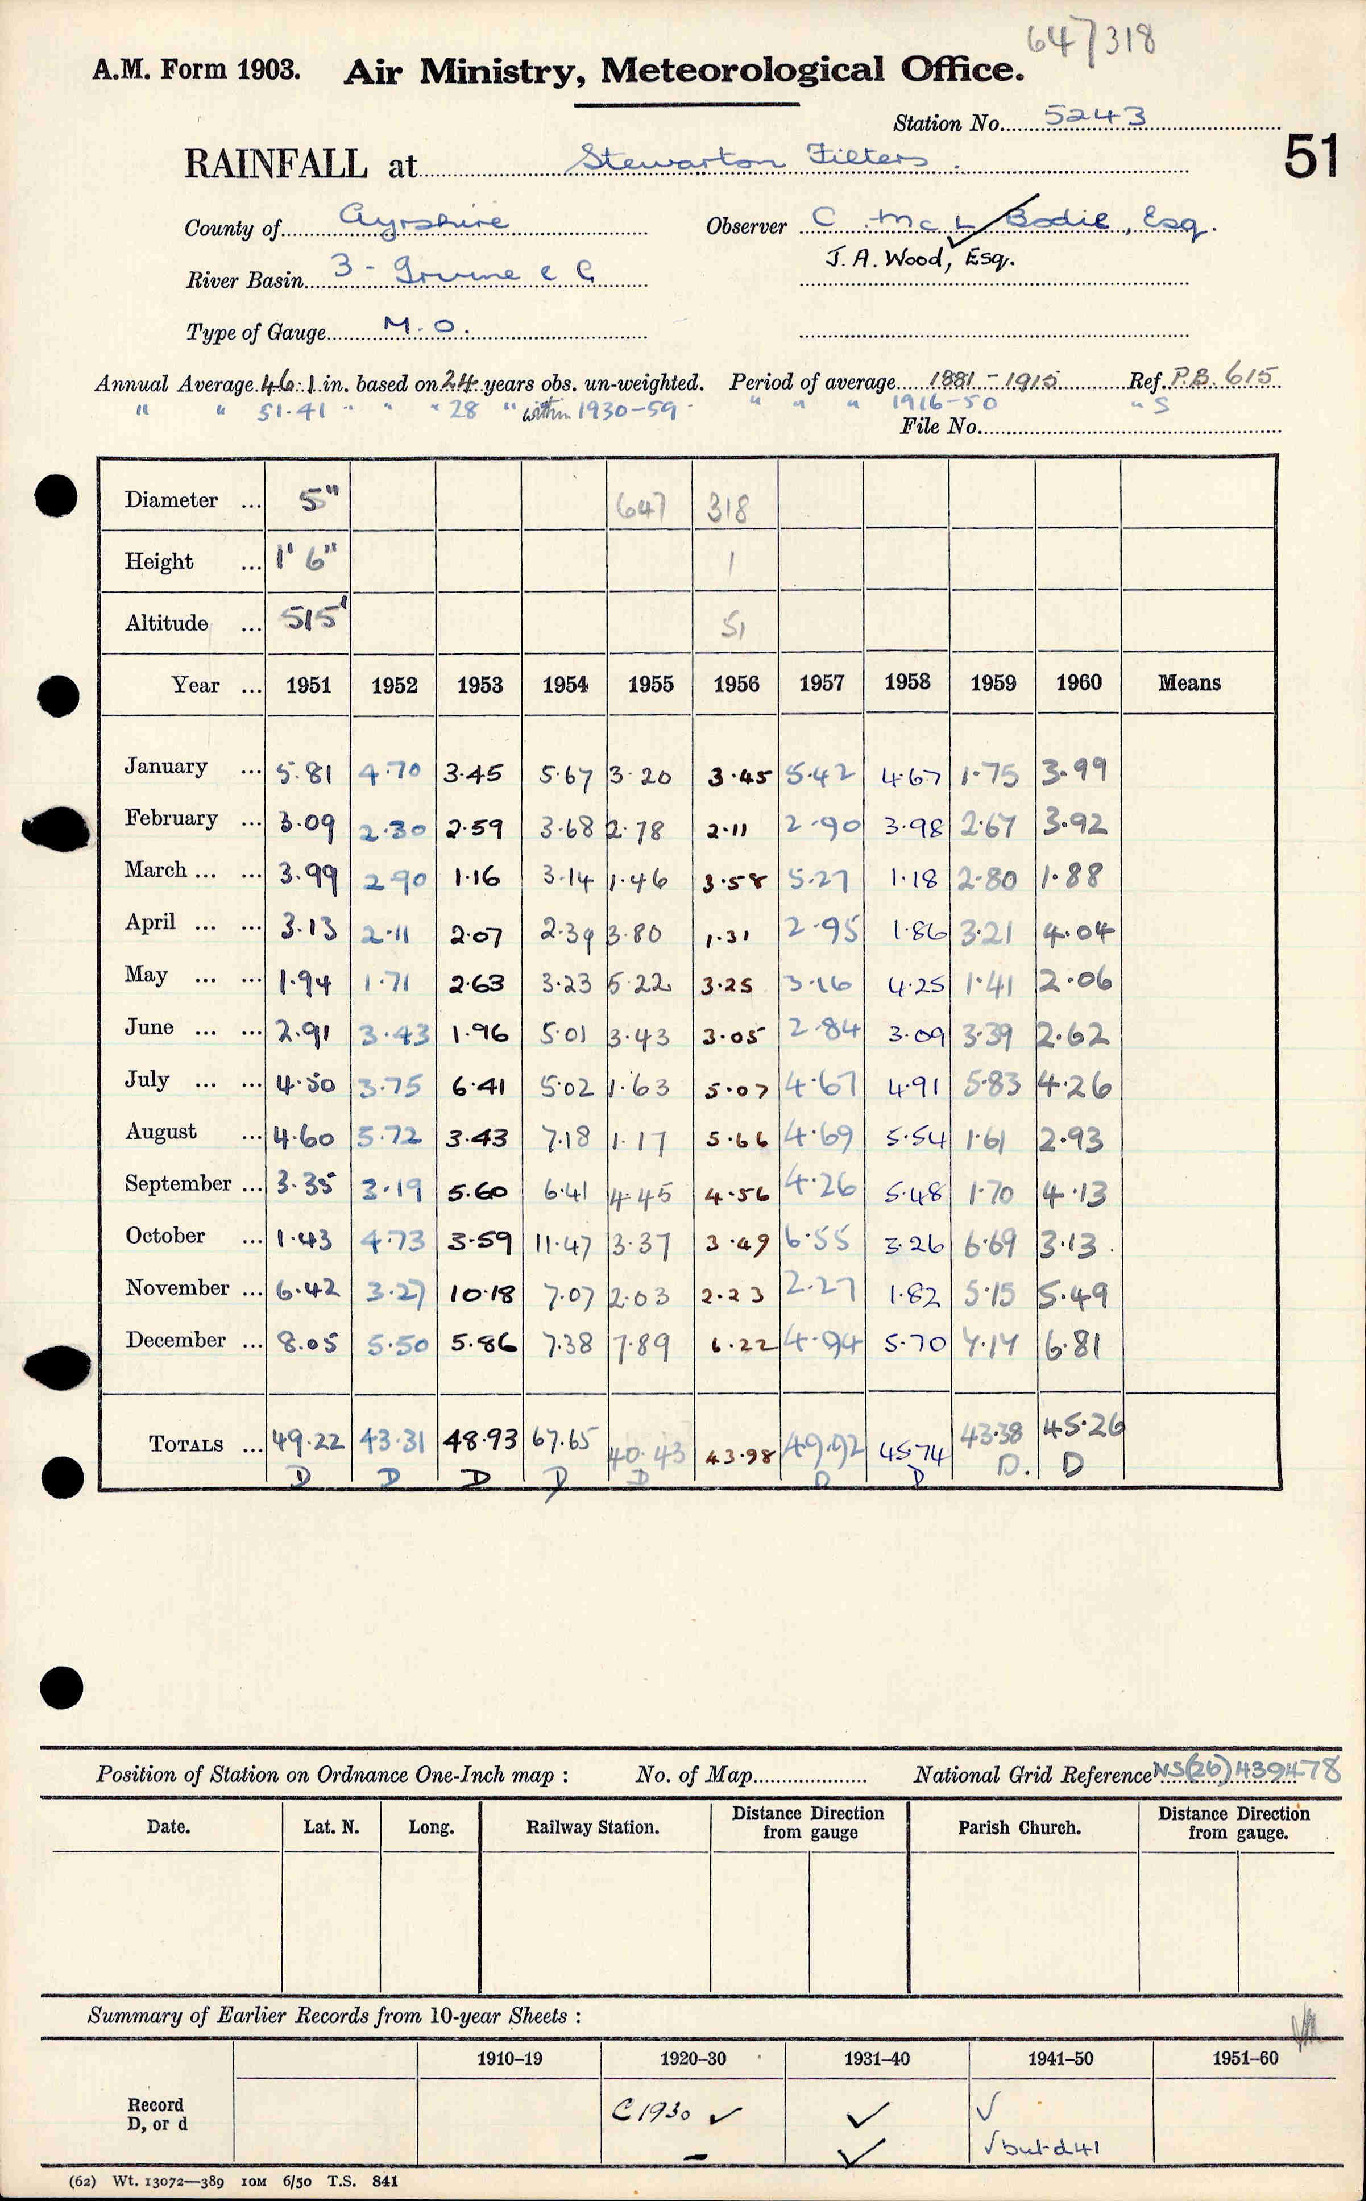 647/318
A.M. Form 1903. Air Ministry, Meteorological Office.
Station No. 5243
RAINFALL at Stewarton Filters. 51
County of Ayrshire Observer C. McL Bodie, Esq.
J. A. Wood, Esq.
River Basin 3 - Irvine & G
Type of Gauge M.O.
Annual Average 46.1 in. based on 24 years obs. un-weighted. Period of average 1881-1915 Ref. P.B. 615
" " 51.41 " " " 28 " within 1930-59 " " " 1916-50 " S
File No.
Diameter ... 5" 647 318
Height ... 1' 6" 1
Altitude ... 515' 51
Year ... 1951 1952 1953 1954 1955 1956 1957 1958 1959 1960 Means
January ... 5.81 4.70 3.45 5.67 3.20 3.45 5.42 4.67 1.75 3.99
February ... 3.09 2.30 2.59 3.68 2.78 2.11 2.90 3.98 2.67 3.92
March ... ... 3.99 2.90 1.16 3.14 1.46 3.58 5.27 1.18 2.80 1.88
April ... ... 3.13 2.11 2.07 2.39 3.80 1.31 2.95 1.86 3.21 4.04
May ... ... 1.94 1.71 2.63 3.23 5.22 3.25 3.16 4.25 1.41 2.06
June ... ... 2.91 3.43 1.96 5.01 3.43 3.05 2.84 3.09 3.39 2.62
July ... ... 4.50 3.75 6.41 5.02 1.63 5.07 4.67 4.91 5.83 4.26
August ... 4.60 5.72 3.43 7.18 1.17 5.66 4.69 5.54 1.61 2.93
September ... 3.35 3.19 5.60 6.41 4.45 4.56 4.26 5.48 1.70 4.13
October ... 1.43 4.73 3.59 11.47 3.37 3.49 6.55 3.26 6.69 3.13
November ... 6.42 3.27 10.18 7.07 2.03 2.23 2.27 1.82 5.15 5.49
December ... 8.05 5.50 5.86 7.38 7.89 6.22 4.94 5.70 7.17 6.81
TOTALS ... 49.22 43.31 48.93 67.65 40.43 43.98 49.92 45.74 43.38 45.26
D D D D D D D D. D
Position of Station on Ordnance One-Inch map : No. of Map National Grid Reference NS(26)439478
Date. Lat. N. Long. Railway Station. Distance Direction from gauge Parish Church. Distance Direction from gauge.
Summary of Earlier Records from 10-year Sheets :
1910–19 1920–30 1931–40 1941–50 1951–60
Record C1930 ✓ ✓ ✓
D, or d – ✓ ✓ but d41
(62) Wt. 13072—389 10M 6/50 T.S. 841